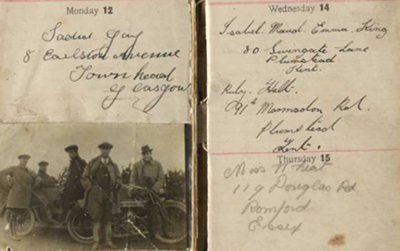 Monday 12
Sadie Gay
8 Earlston Avenue
Townhead
Glasgow
Wednesday 14
Isabel Maud. Emma. King
80 Swingate Lane
Plumstead
Kent.
Ruby. Hall.
91 Marmadon Rd.
Plumstead
Kent.
Thursday 15
Miss
119 Douglas Rd
Romford
Essex